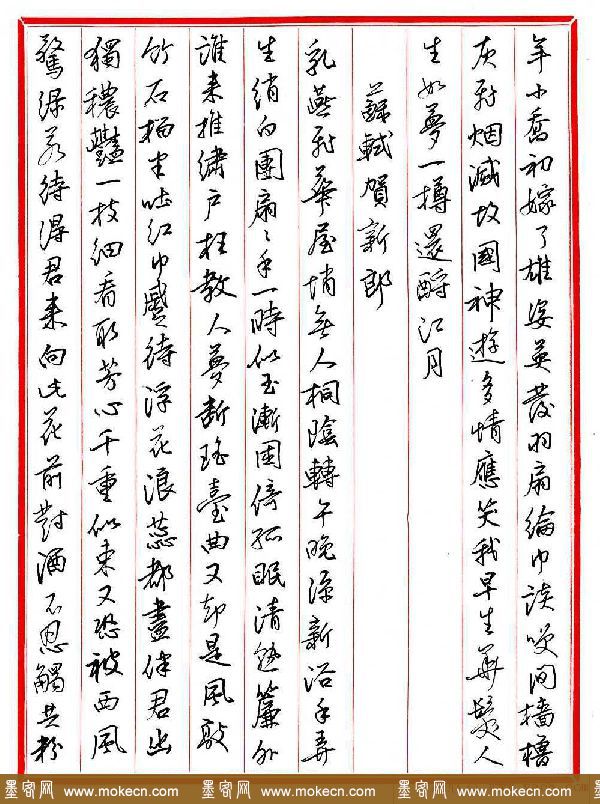 年小喬初嫁了雄姿英發羽扇綸巾談笑間檣櫓
灰飛烟滅故國神遊多情應笑我早生華髮人
生如夢一樽還酹江月
蘇軾賀新郎
乳燕飛華屋悄無人桐陰轉午晚涼新浴手弄
生綃白團扇扇手一時似玉漸困倚孤眠清熟簾外
誰來推繡戶枉教人夢斷瑤臺曲又却是風敲
竹石榴半吐紅巾蹙待浮花浪蕊都盡伴君幽
獨穠艷一枝細看取芳心千重似束又恐被西風
驚綠若待得君來向此花前對酒不忍觸共粉
墨客网 www.mokecn.com 墨客网 www.mokecn.com 墨客网 www.mokecn.com